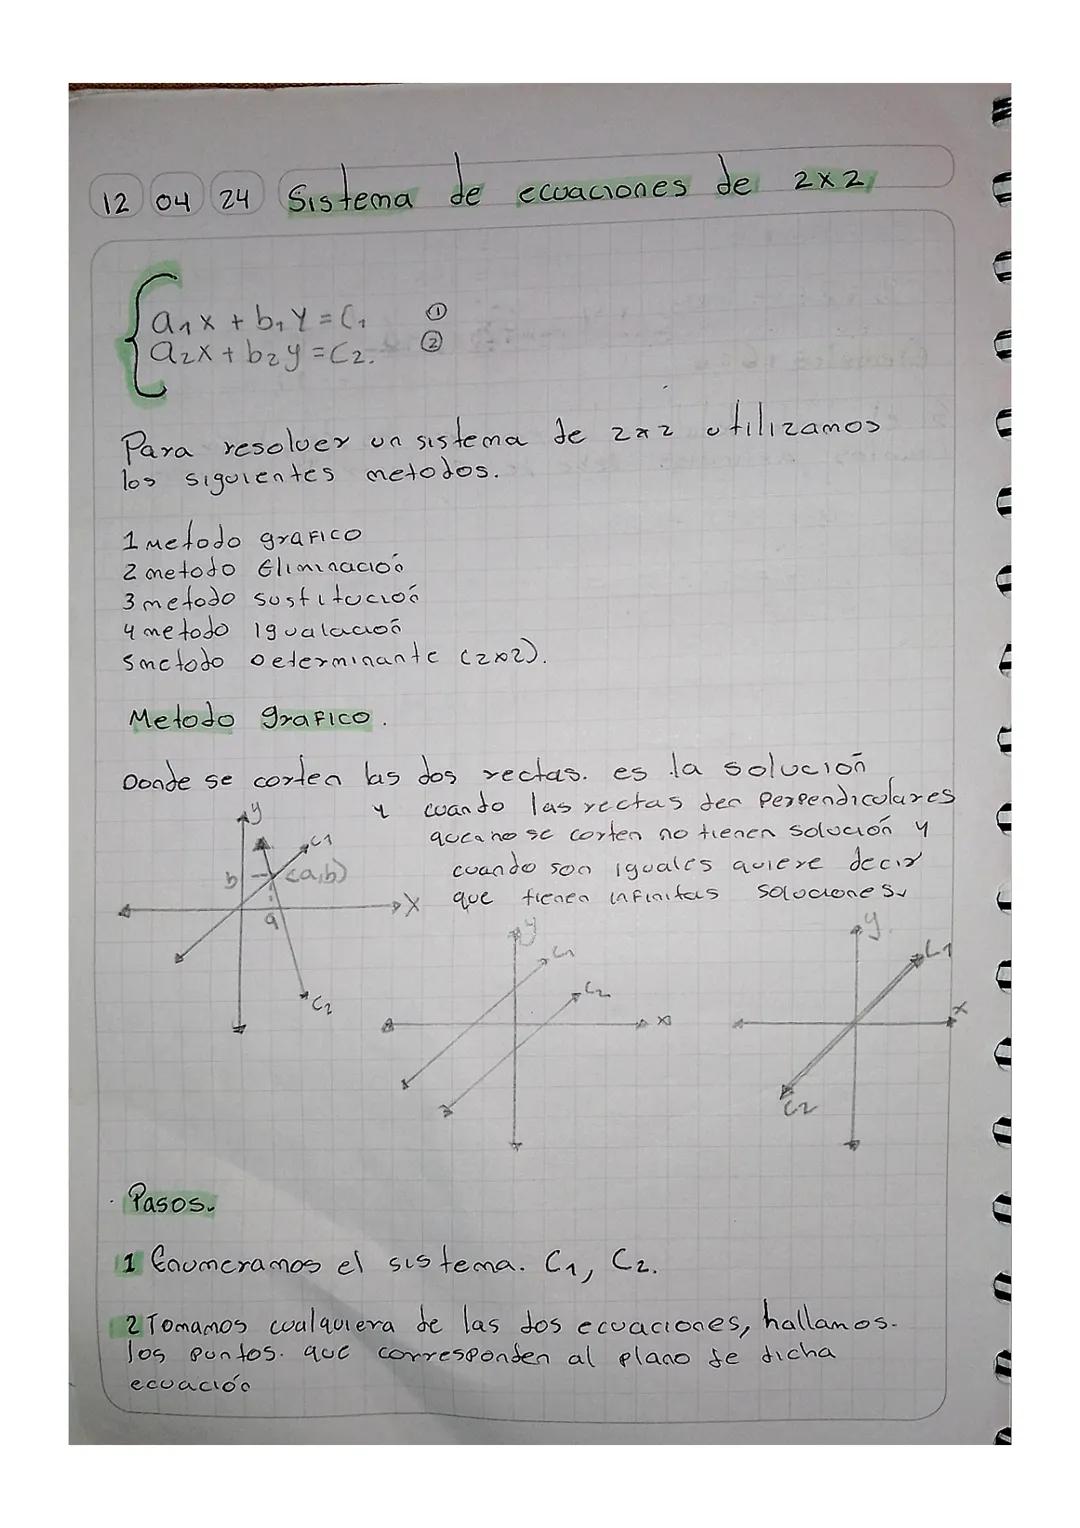 12 04 24 Sistema de ecuaciones de 2x2
a₁x + b₁y = C₁ ①
a₂x + b₂y = C₂. ②
Para resolver un sistema de 2x2 utilizamos
los siguientes metodos.
1 metodo grafico
2 metodo Eliminación
3 metodo sustitución
4 metodo igualación
5 metodo Determinante (2x2).
Metodo grafico.
Donde se corten las dos rectas. es la solución
y cuando las rectas den Perpendiculares
que no se corten no tienen solución y
cuando son iguales quiere decir
que tienen infinitas soluciones
y
C1
b
(a,b)
x
a
C2
y
C1
C2
x
y
C1
x
C2
Pasos.
1 Enumeramos el sistema. C₁, C₂.
2 Tomamos cualquiera de las dos ecuaciones, hallamos.
los puntos. que corresponden al plano de dicha
ecuación